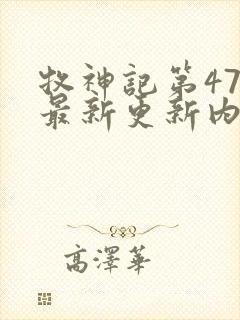 牧神記第47
最新更新內
高澤華